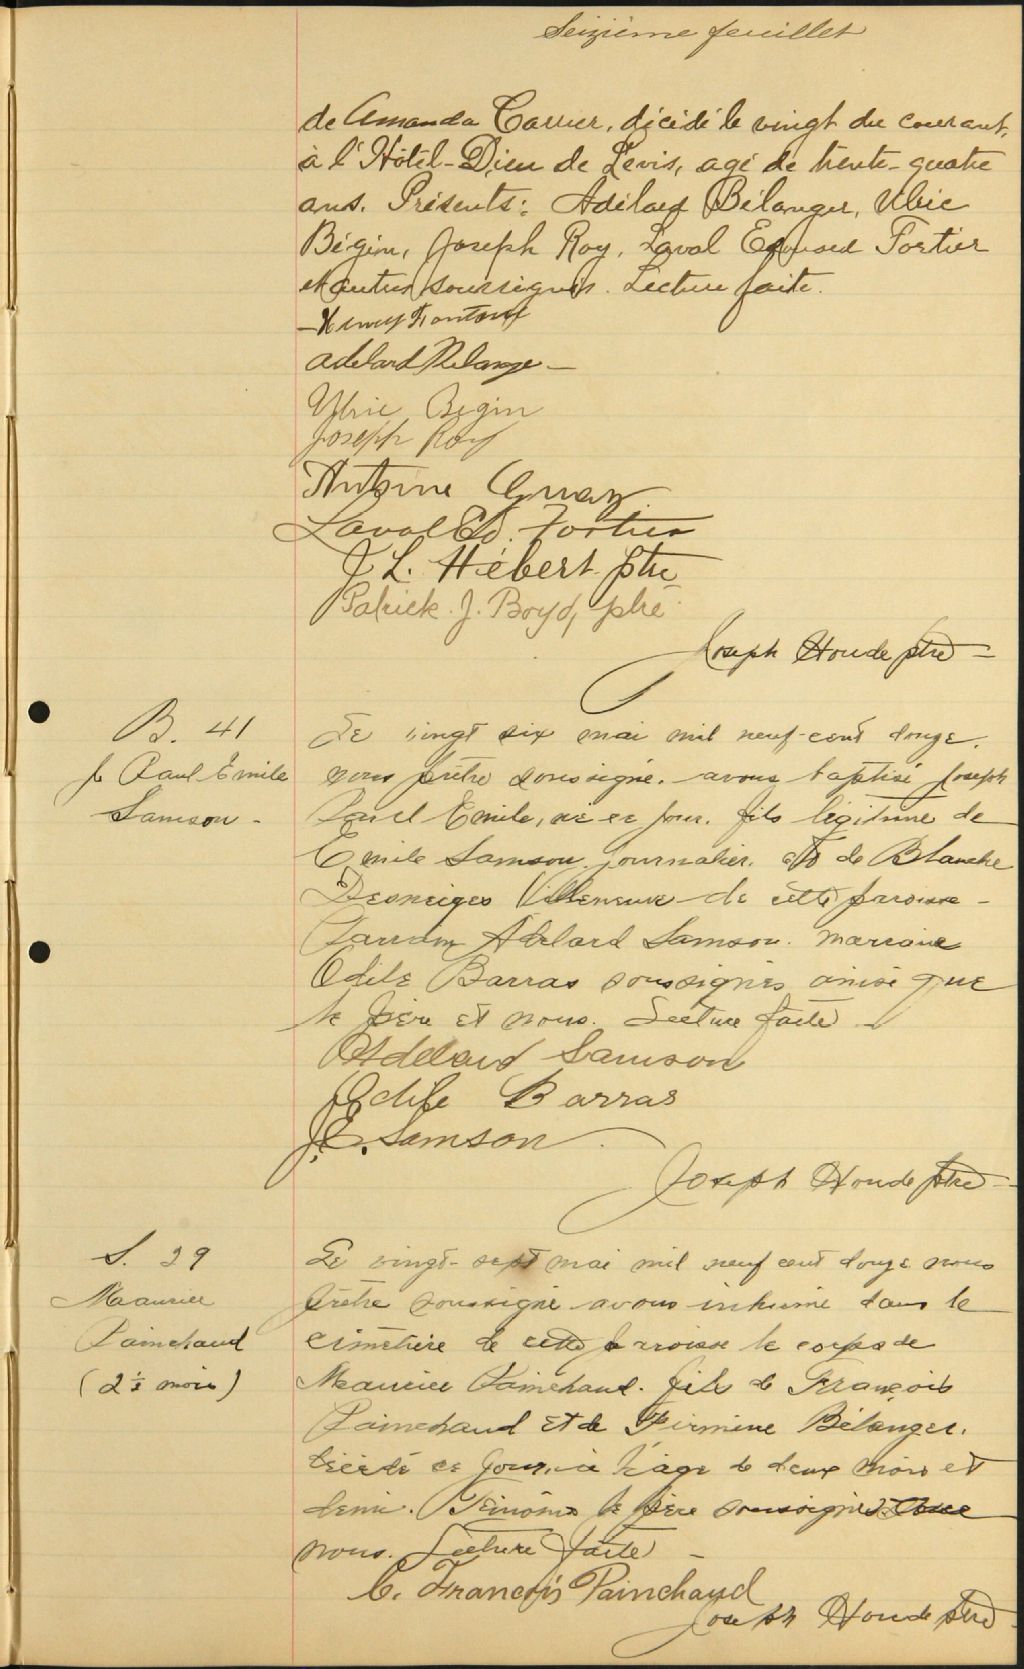 Seizième feuillet
de Amanda Carrier, décédé le vingt du courant,
à l'Hôtel-Dieu de Lévis, agé de trente-quatre
ans. Présents: Adélard Bélanger, Ulric
Bégin, Joseph Roy, Laval Edouard Fortier
et autres soussignés. Lecture faite.
Adelard Belanger
Ulric Begin
Joseph Roy
Antoine Guay
Laval Ed. Fortier
J L. Hébert ptre
Patrick J. Boyd, ptre
Joseph Houde ptre
B. 41
J. Paul Emile
Samson -
Le vingt six mai mil neuf-cent douze.
nous prêtre soussigné. avons baptisé Joseph
Paul Emile, né ce jour. fils légitime de
Emile Samson journalier. et de Blanche
Desneiges Villeneuve de cette paroisse -
Parrain Adelard Samson. marraine
Odile Barras soussignés ainsi que
le père et nous. Lecture faite -
Adelard Samson
Odile Barras
J. E. Samson
Joseph Houde ptre
S. 29
Maaurice
Painchaud
(2 ½ mois)
Le vingt-sept mai mil neuf cent douze nous
prêtre soussigné avons inhumé dans le
cimetière de cette paroisse le corps de
Maurice Painchaud. fils de François
Painchaud et de Firmine Bélanger.
décédé ce jour, à l'âge de deux mois et
demi. Témoins le père soussigné avec
nous. Lecture faite -
C. François Painchaud
Joseph Houde ptre